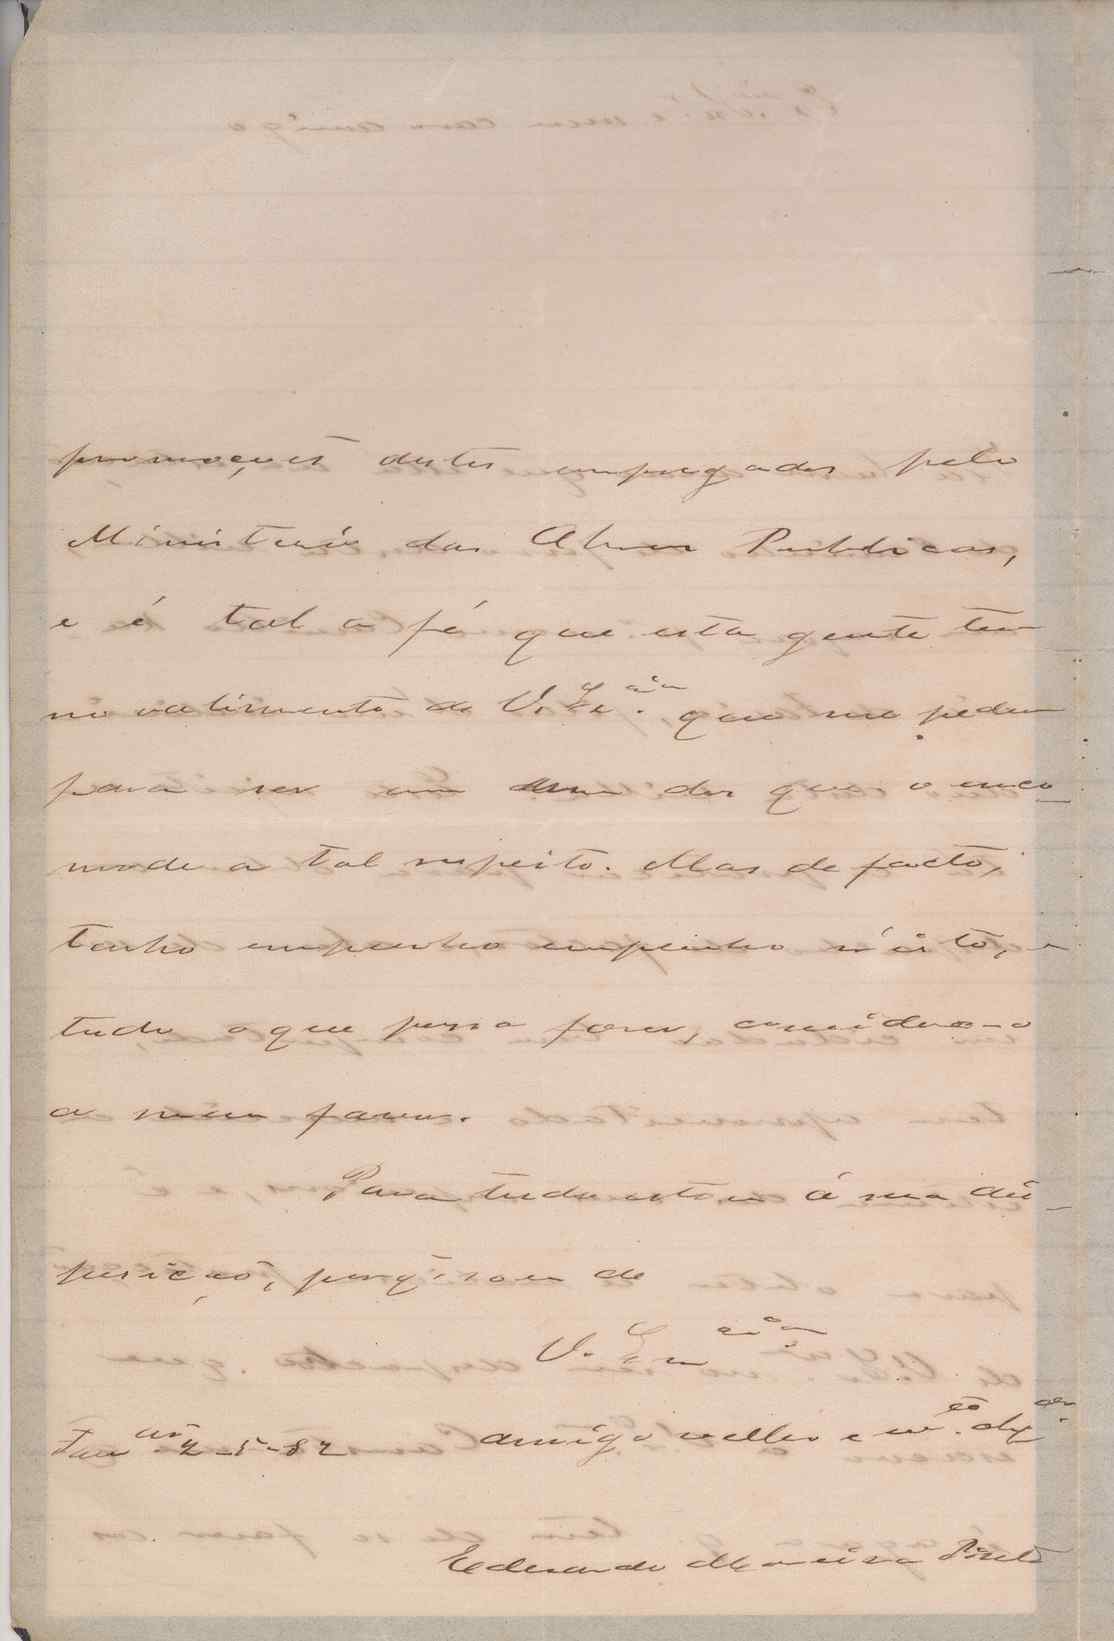 promoções destes empregados pelo
Ministerio das Obras Publicas,
e é tal a fé que esta gente tem
no valimento de V. Ex.cia que me pedem
para ser um dos que o inco-
mode a tal respeito. Mas de facto,
tenho empenho empenho n'isto, e
tudo o que possa fazer, considero-o
a meu favor.
Para tudo estou á sua dis-
posição, porq. sou de
V. Ex cia
2-5-82 amigo velho e m.to
Eduardo Moreira Pinto